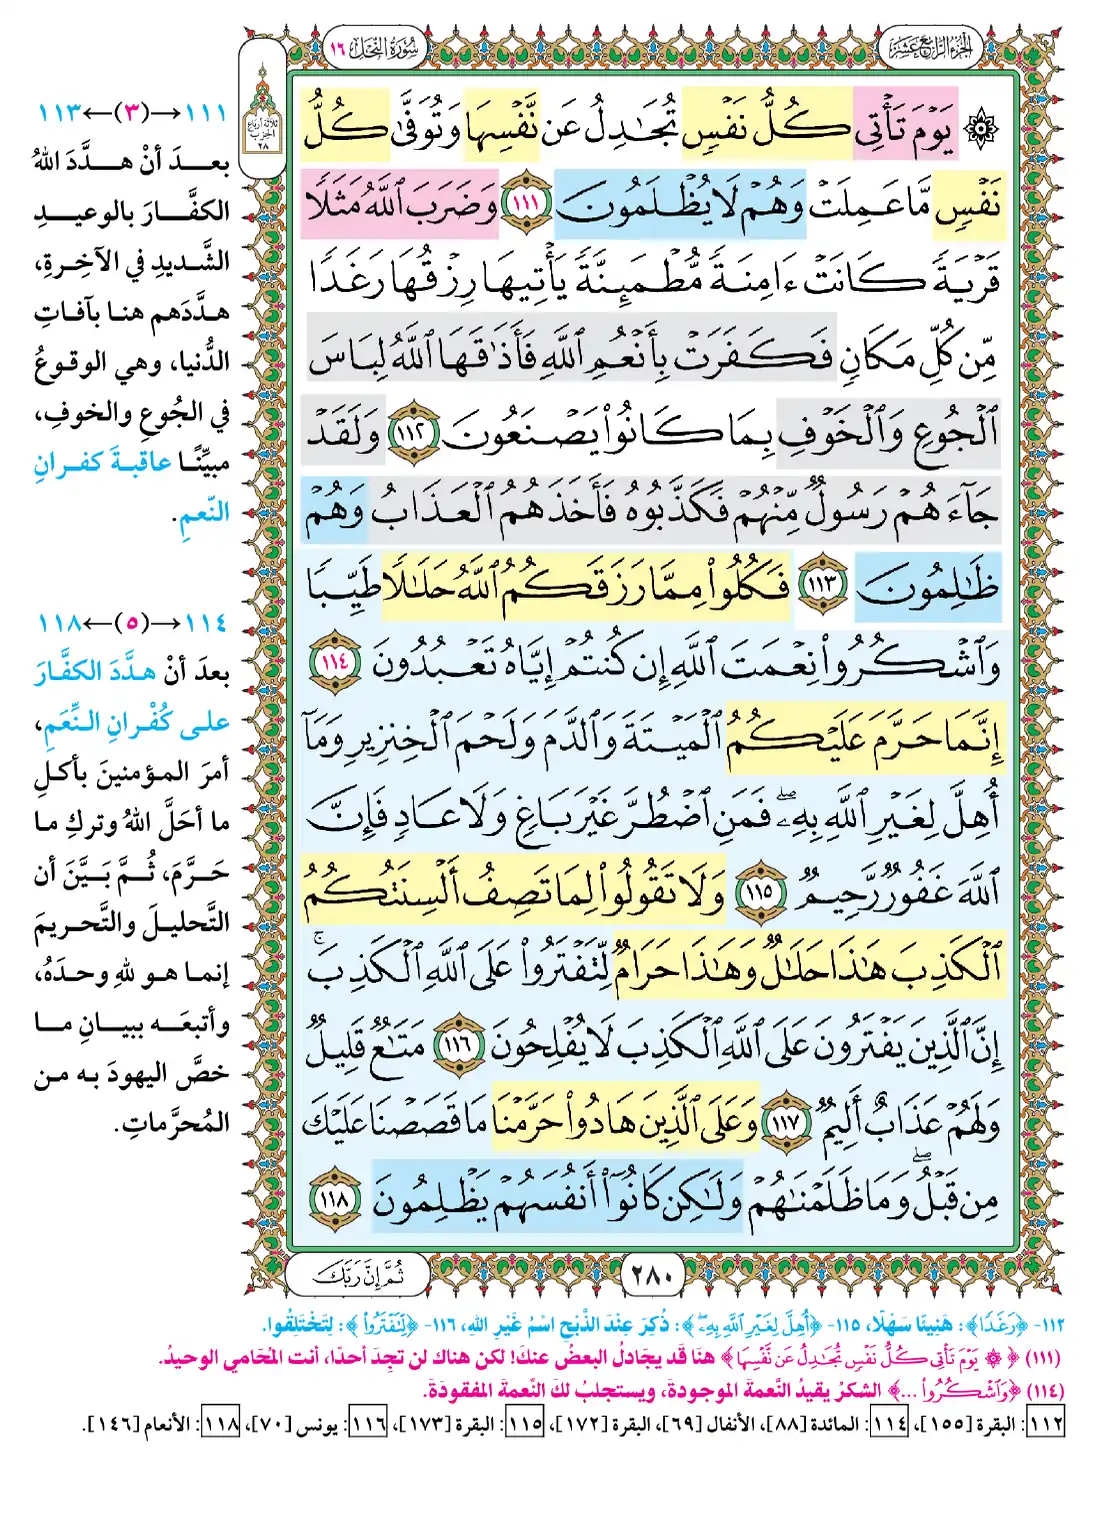 الجزء الرابع عشر
سورة النحل ١٦
ثلاثة أرباع
الحزب
٢٨
۞ يَوْمَ تَأْتِي كُلُّ نَفْسٍ تُجَادِلُ عَن نَّفْسِهَا وَتُوَفَّىٰ كُلُّ
نَفْسٍ مَّا عَمِلَتْ وَهُمْ لَا يُظْلَمُونَ ١١١ وَضَرَبَ ٱللَّهُ مَثَلًا
قَرْيَةً كَانَتْ ءَامِنَةً مُّطْمَئِنَّةً يَأْتِيهَا رِزْقُهَا رَغَدًا
مِّن كُلِّ مَكَانٍ فَكَفَرَتْ بِأَنْعُمِ ٱللَّهِ فَأَذَٰقَهَا ٱللَّهُ لِبَاسَ
ٱلْجُوعِ وَٱلْخَوْفِ بِمَا كَانُوا۟ يَصْنَعُونَ ١١٢ وَلَقَدْ
جَآءَهُمْ رَسُولٌ مِّنْهُمْ فَكَذَّبُوهُ فَأَخَذَهُمُ ٱلْعَذَابُ وَهُمْ
ظَٰلِمُونَ ١١٣ فَكُلُوا۟ مِمَّا رَزَقَكُمُ ٱللَّهُ حَلَٰلًا طَيِّبًا
وَٱشْكُرُوا۟ نِعْمَتَ ٱللَّهِ إِن كُنتُمْ إِيَّاهُ تَعْبُدُونَ ١١٤
إِنَّمَا حَرَّمَ عَلَيْكُمُ ٱلْمَيْتَةَ وَٱلدَّمَ وَلَحْمَ ٱلْخِنزِيرِ وَمَآ
أُهِلَّ لِغَيْرِ ٱللَّهِ بِهِۦۖ فَمَنِ ٱضْطُرَّ غَيْرَ بَاغٍ وَلَا عَادٍ فَإِنَّ
ٱللَّهَ غَفُورٌ رَّحِيمٌ ١١٥ وَلَا تَقُولُوا۟ لِمَا تَصِفُ أَلْسِنَتُكُمُ
ٱلْكَذِبَ هَٰذَا حَلَٰلٌ وَهَٰذَا حَرَامٌ لِّتَفْتَرُوا۟ عَلَى ٱللَّهِ ٱلْكَذِبَۚ
إِنَّ ٱلَّذِينَ يَفْتَرُونَ عَلَى ٱللَّهِ ٱلْكَذِبَ لَا يُفْلِحُونَ ١١٦ مَتَٰعٌ قَلِيلٌ
وَلَهُمْ عَذَابٌ أَلِيمٌ ١١٧ وَعَلَى ٱلَّذِينَ هَادُوا۟ حَرَّمْنَا مَا قَصَصْنَا عَلَيْكَ
مِن قَبْلُۖ وَمَا ظَلَمْنَٰهُمْ وَلَٰكِن كَانُوٓا۟ أَنفُسَهُمْ يَظْلِمُونَ ١١٨
٢٨٠
ثُمَّ إِنَّ رَبَّكَ
١١١→(٣)←١١٣
بعدَ أنْ هدَّدَ اللهُ
الكفَّارَ بالوعيدِ
الشَّديدِ في الآخِرةِ،
هدَّدَهم هنا بآفاتِ
الدُّنيا، وهي الوقوعُ
في الجُوعِ والخوفِ،
مبيِّنًا عاقبةَ كفرانِ
النّعمِ.
١١٤→(٥)←١١٨
بعدَ أنْ هدَّدَ الكفَّارَ
على كُفْرانِ النِّعَمِ،
أمرَ المؤمنينَ بأكلِ
ما أحَلَّ اللهُ وتركِ ما
حَرَّمَ، ثُمَّ بَيَّنَ أن
التَّحليلَ والتَّحريمَ
إنما هو للهِ وحدَهُ،
وأتبعَه ببيانِ ما
خصَّ اليهودَ به من
المُحرَّماتِ.
١١٢- ﴿رَغَدًا﴾: هَنِيئًا سَهْلًا، ١١٥- ﴿أُهِلَّ لِغَيْرِ ٱللَّهِ بِهِۦۖ﴾: ذُكِرَ عِنْدَ الذَّبْحِ اسْمُ غَيْرِ اللهِ، ١١٦- ﴿لِّتَفْتَرُوا۟﴾: لِتَخْتَلِقُوا.
(١١١) ﴿۞ يَوْمَ تَأْتِي كُلُّ نَفْسٍ تُجَادِلُ عَن نَّفْسِهَا﴾ هنَا قَد يجَادلُ البعضُ عنكَ! لكن هناك لن تجِدَ أحدًا، أنت المُحَامي الوحيدُ.
(١١٤) ﴿وَٱشْكُرُوا۟ ...﴾ الشكرُ يقيدُ النَّعمةَ الموجودةَ، ويستجلبُ لكَ النَّعمةَ المفقودةَ.
١١٢: البقرة [١٥٥]، ١١٤: المائدة [٨٨]، الأنفال [٦٩]، البقرة [١٧٢]، ١١٥: البقرة [١٧٣]، ١١٦: يونس [٧٠]، ١١٨: الأنعام [١٤٦].